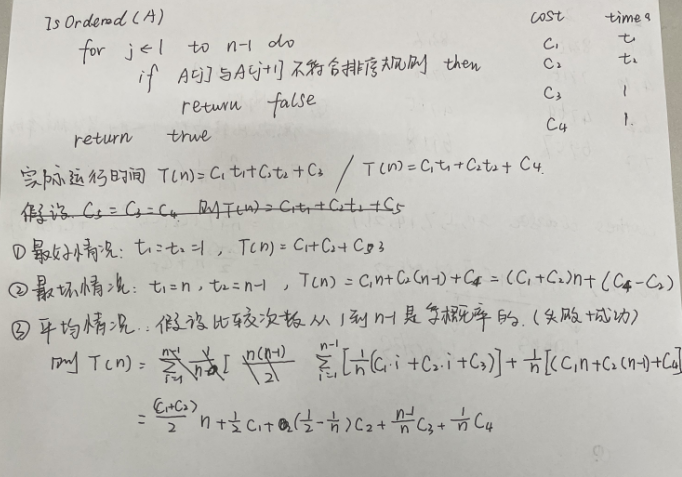 IsOrdered(A) cost times
for j←1 to n-1 do C₁ t₁
if A[j]与A[j+1]不符合排序规则 then C₂ t₂
return false C₃ 1
return true C₄ 1
实际运行时间 T(n)=C₁t₁+C₂t₂+C₃ / T(n)=C₁t₁+C₂t₂+C₄.
假设 C₅=C₃=C₄ 则T(n)=C₁t₁+C₂t₂+C₅
①最好情况: t₁=t₂=1, T(n)=C₁+C₂+C₃
②最坏情况: t₁=n, t₂=n-1, T(n)=C₁n+C₂(n-1)+C₄=(C₁+C₂)n+(C₄-C₂)
③平均情况: 假设比较次数从1到n-1是等概率的.(失败+成功)
则 T(n)= ∑ᵢ₌₁ⁿ⁻¹ [n(n-1)/2 ∑ᵢ₌₁ⁿ⁻¹[1/n(C₁·i+C₂·i+C₃)]+1/n[(C₁n+C₂(n-1)+C₄]
=(C₁+C₂)/2 n+1/2 C₁+(1/2-1/n)C₂+(n-1)/n C₃+1/n C₄